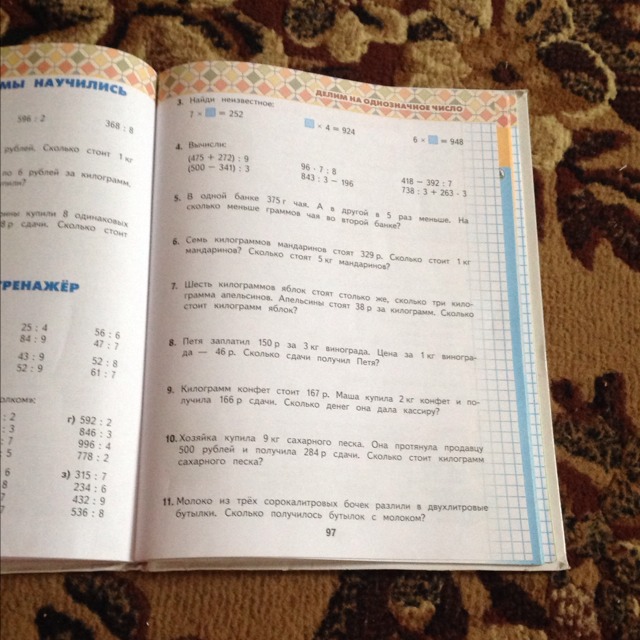 МЫ НАУЧИЛИСЬ
596 : 2
368 : 8
рублей. Сколько стоит 1 кг
по 6 рублей за килограмм,
купили 8 одинаковых
сдачи. Сколько стоит
ТРЕНАЖЁР
25 : 4
56 : 6
84 : 9
47 : 7
43 : 9
52 : 8
52 : 9
61 : 7
: 2
г) 592 : 2
: 3
846 : 3
: 7
996 : 4
: 5
778 : 2
6
з) 315 : 7
8
234 : 6
432 : 9
7
536 : 8
ДЕЛИМ НА ОДНОЗНАЧНОЕ ЧИСЛО
3. Найди неизвестное:
7 × = 252
× 4 = 924
6 × = 948
4. Вычисли:
(475 + 272) : 9
96 · 7 : 8
418 − 392 : 7
(500 − 341) : 3
843 : 3 − 196
738 : 3 + 263 · 3
5. В одной банке 375 г чая. А в другой в 5 раз меньше. На
сколько меньше граммов чая во второй банке?
6. Семь килограммов мандаринов стоят 329 р. Сколько стоит 1 кг
мандаринов? Сколько стоят 5 кг мандаринов?
7. Шесть килограммов яблок стоят столько же, сколько три кило-
грамма апельсинов. Апельсины стоят 38 р за килограмм. Сколько
стоит килограмм яблок?
8. Петя заплатил 150 р за 3 кг винограда. Цена за 1 кг виногра-
да — 46 р. Сколько сдачи получил Петя?
9. Килограмм конфет стоит 167 р. Маша купила 2 кг конфет и по-
лучила 166 р сдачи. Сколько денег она дала кассиру?
10. Хозяйка купила 9 кг сахарного песка. Она протянула продавцу
500 рублей и получила 284 р сдачи. Сколько стоит килограмм
сахарного песка?
11. Молоко из трёх сорокалитровых бочек разлили в двухлитровые
бутылки. Сколько получилось бутылок с молоком?
97